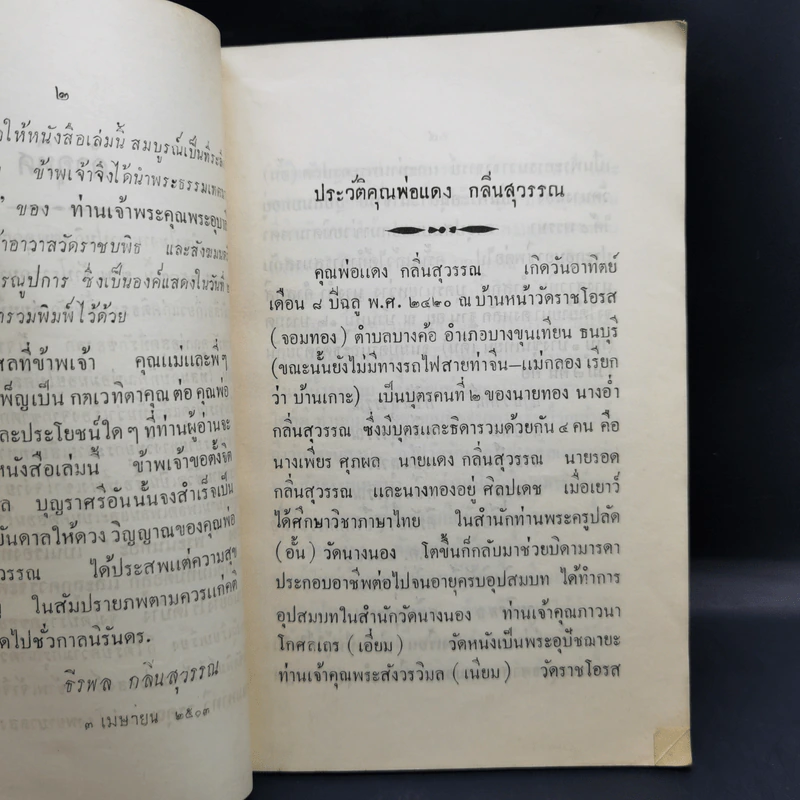 ๒
ให้หนังสือเล่มนี้ สมบูรณ์เป็นที่ระลึก
ข้าพเจ้าจึงได้นำพระธรรมเทศนา
ของ ท่านเจ้าพระคุณพระอุบาลี
อาวาสวัดราชบพิธ และสังฆมนตรี
รณูปการ ซึ่งเป็นองค์แสดงในวันที่
ารวมพิมพ์ไว้ด้วย
ศลที่ข้าพเจ้า คุณแม่และพี่ๆ
พ็ญเป็น กตเวทิตาคุณ ต่อ คุณพ่อ
ละประโยชน์ใดๆ ที่ท่านผู้อ่านจะ
หนังสือเล่มนี้ ข้าพเจ้าขอตั้งจิต
ล บุญราศรีอันนั้นจงสำเร็จเป็น
บันดาลให้ดวง วิญญาณของคุณพ่อ
วรรณ ได้ประสพแต่ความสุข
ในสัมปรายภพตามควรแก่คติ
ดไปชั่วกาลนิรันดร.
ธีรพล กลิ่นสุวรรณ
๓ เมษายน ๒๕๐๓
ประวัติคุณพ่อแดง กลิ่นสุวรรณ
คุณพ่อแดง กลิ่นสุวรรณ เกิดวันอาทิตย์
เดือน ๘ ปีฉลู พ.ศ. ๒๔๒๐ ณ บ้านหน้าวัดราชโอรส
(จอมทอง) ตำบลบางค้อ อำเภอบางขุนเทียน ธนบุรี
(ขณะนั้นยังไม่มีทางรถไฟสายท่าจีน–แม่กลอง เรียก
ว่า บ้านเกาะ) เป็นบุตรคนที่ ๒ ของนายทอง นางอ่ำ
กลิ่นสุวรรณ ซึ่งมีบุตรและธิดารวมด้วยกัน ๔ คน คือ
นางเพียร ศุภผล นายแดง กลิ่นสุวรรณ นายรอด
กลิ่นสุวรรณ และนางทองอยู่ ศิลปเดช เมื่อเยาว์
ได้ศึกษาวิชาภาษาไทย ในสำนักท่านพระครูปลัด
(อั้น) วัดนางนอง โตขึ้นก็กลับมาช่วยบิดามารดา
ประกอบอาชีพต่อไปจนอายุครบอุปสมบท ได้ทำการ
อุปสมบทในสำนักวัดนางนอง ท่านเจ้าคุณภาวนา
โกศลเถร (เอี่ยม) วัดหนังเป็นพระอุปัชฌายะ
ท่านเจ้าคุณพระสังวรวิมล (เนียม) วัดราชโอรส